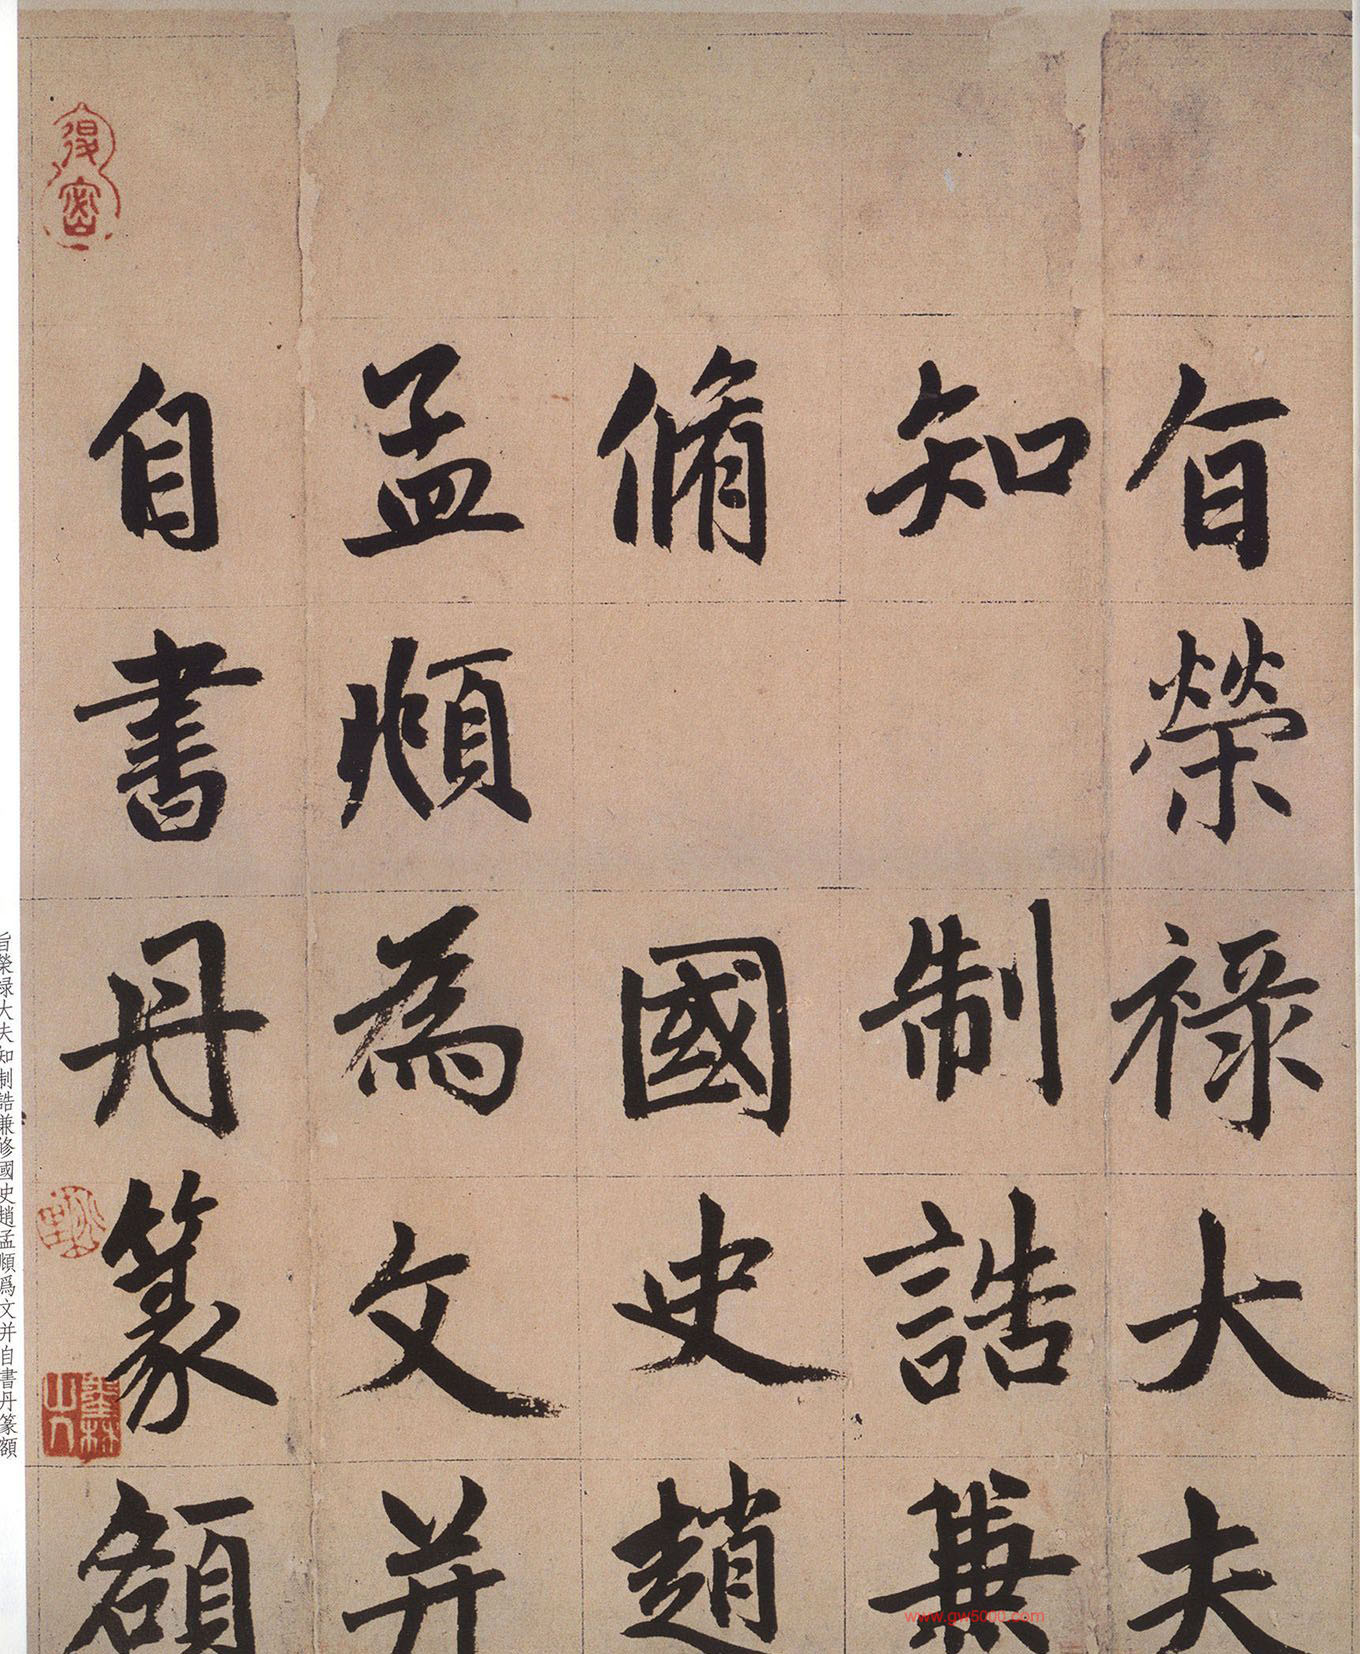 旨榮祿大夫
知 制誥兼
脩 國史趙
孟頫為文并
自書丹篆額
得密
墨林山人
旨榮祿大夫知制誥兼修國史趙孟頫爲文并自書丹篆額
www.gw5000.com